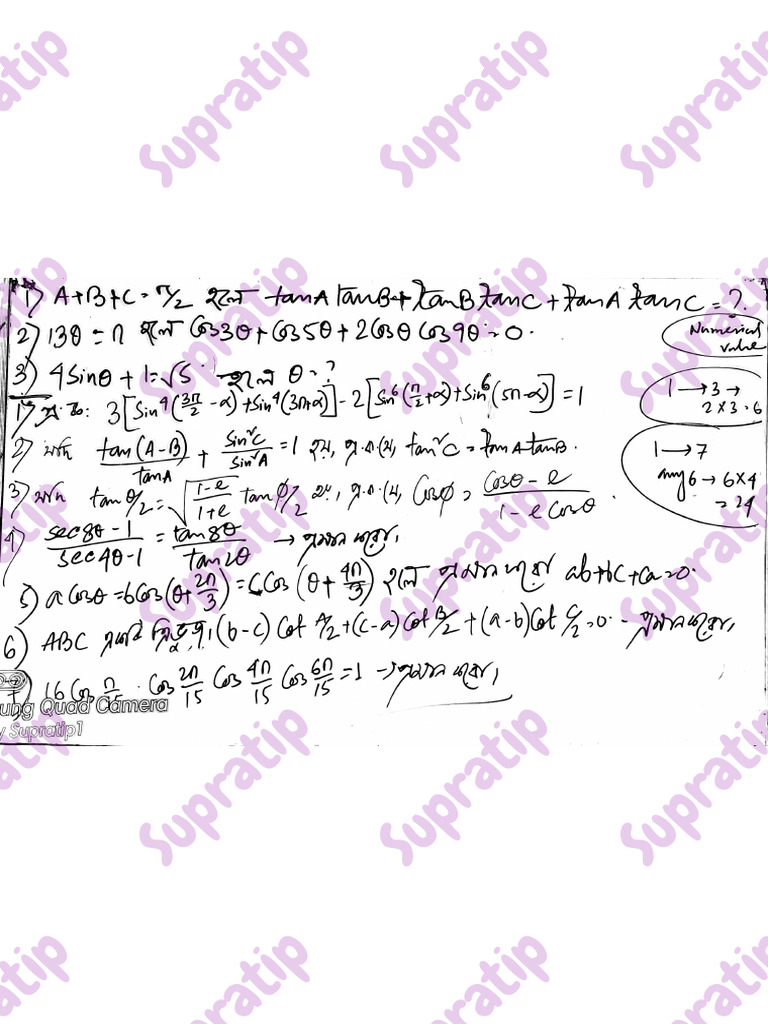 1) A+B+C = π/2 হলে tanA tanB + tanB tanC + tanA tanC = ?.
2) 13θ = π হলে Cos3θ + Cos5θ + 2Cosθ Cos9θ = 0.
Numerical value
3) 4Sinθ + 1 = √5 হলে θ = ?
1 → 3 → 2×3 = 6
1) প্র. ক: 3[Sin⁴(3π/2 - α) + Sin⁴(3π+α)] - 2[Sin⁶(π/2+α) + Sin⁶(5π-α)] = 1
2) যদি tan(A-B)/tanA + Sin²C/Sin²A = 1 হয়, প্র.ক.যে, tan²C = tanA tanB.
1 → 7
any 6 → 6×4 = 24
3) যদি tanθ/2 = √(1-e/1+e) tanφ/2 হয়, প্র.ক.যে, Cosφ = Cosθ - e/1 - e Cosθ.
4) sec8θ - 1/sec4θ - 1 = tan8θ/tan2θ → প্রমাণ করো।
5) a Cosθ = b Cos(θ + 2π/3) = c Cos(θ + 4π/3) হলে প্রমাণ করো ab+bc+ca = 0.
6) ABC একটি ত্রিভুজে (b-c) Cot A/2 + (c-a) Cot B/2 + (a-b) Cot C/2 = 0. - প্রমাণ করো।
7) 16 Cos π/15 . Cos 2π/15 Cos 4π/15 Cos 6π/15 = 1 → প্রমাণ করো।
ung Quad Camera
y Supratip1
Supratip